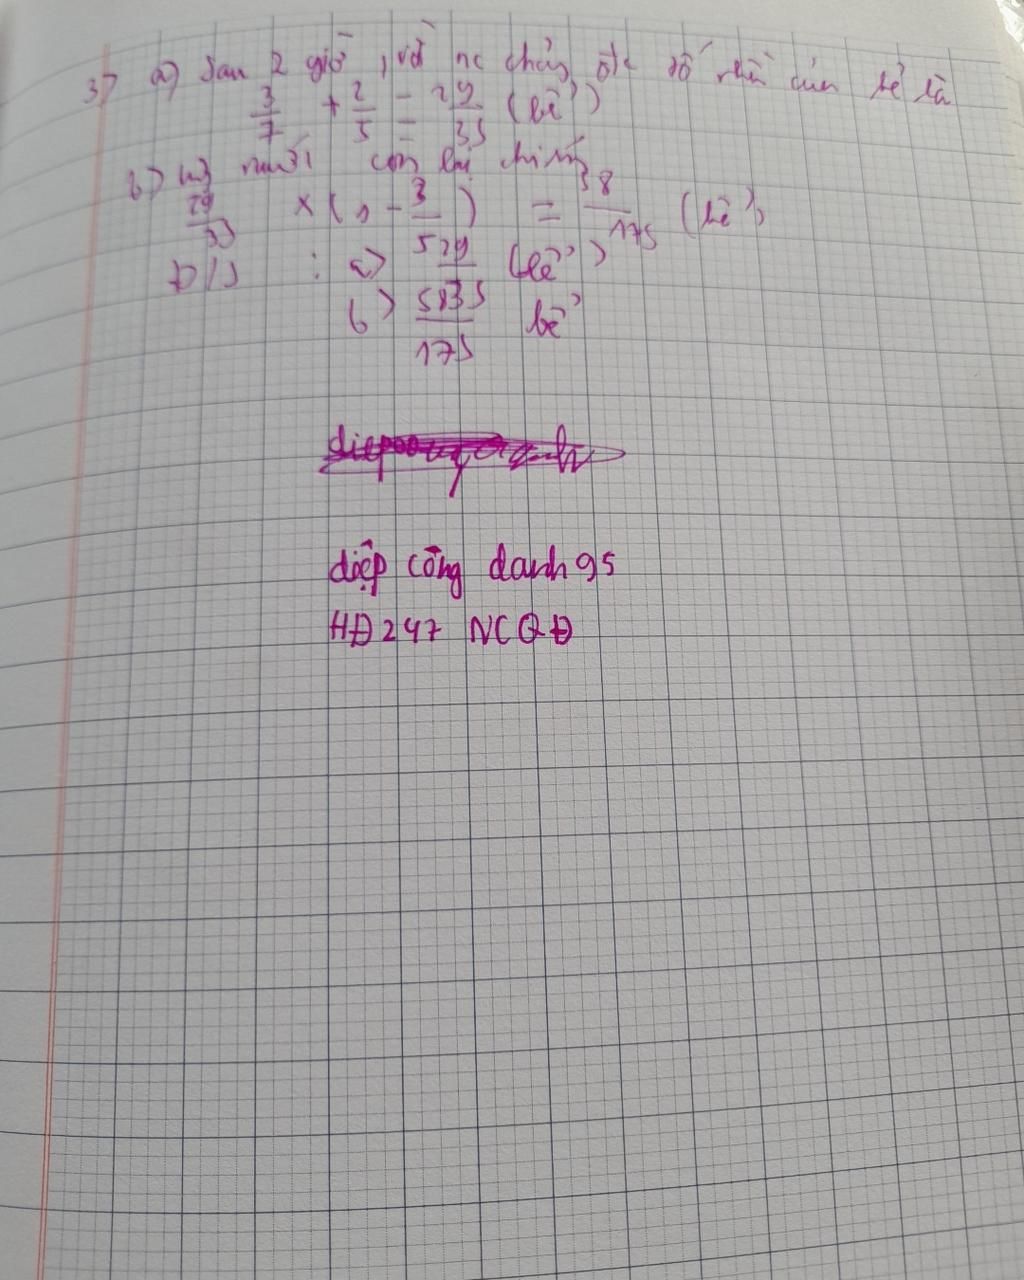 3) a) Sau 2 giờ, vòi nc chảy đc số phần của bể là
3/7 + 2/5 = 29/35 (bể)
b) nước còn lại chiếm
29/35 × (1 - 3/5) = 58/175 (bể)
Đ/S : a) 29/35 (bể)
b) 175 bể
diệp công danh 95
HĐ247 NCQĐ